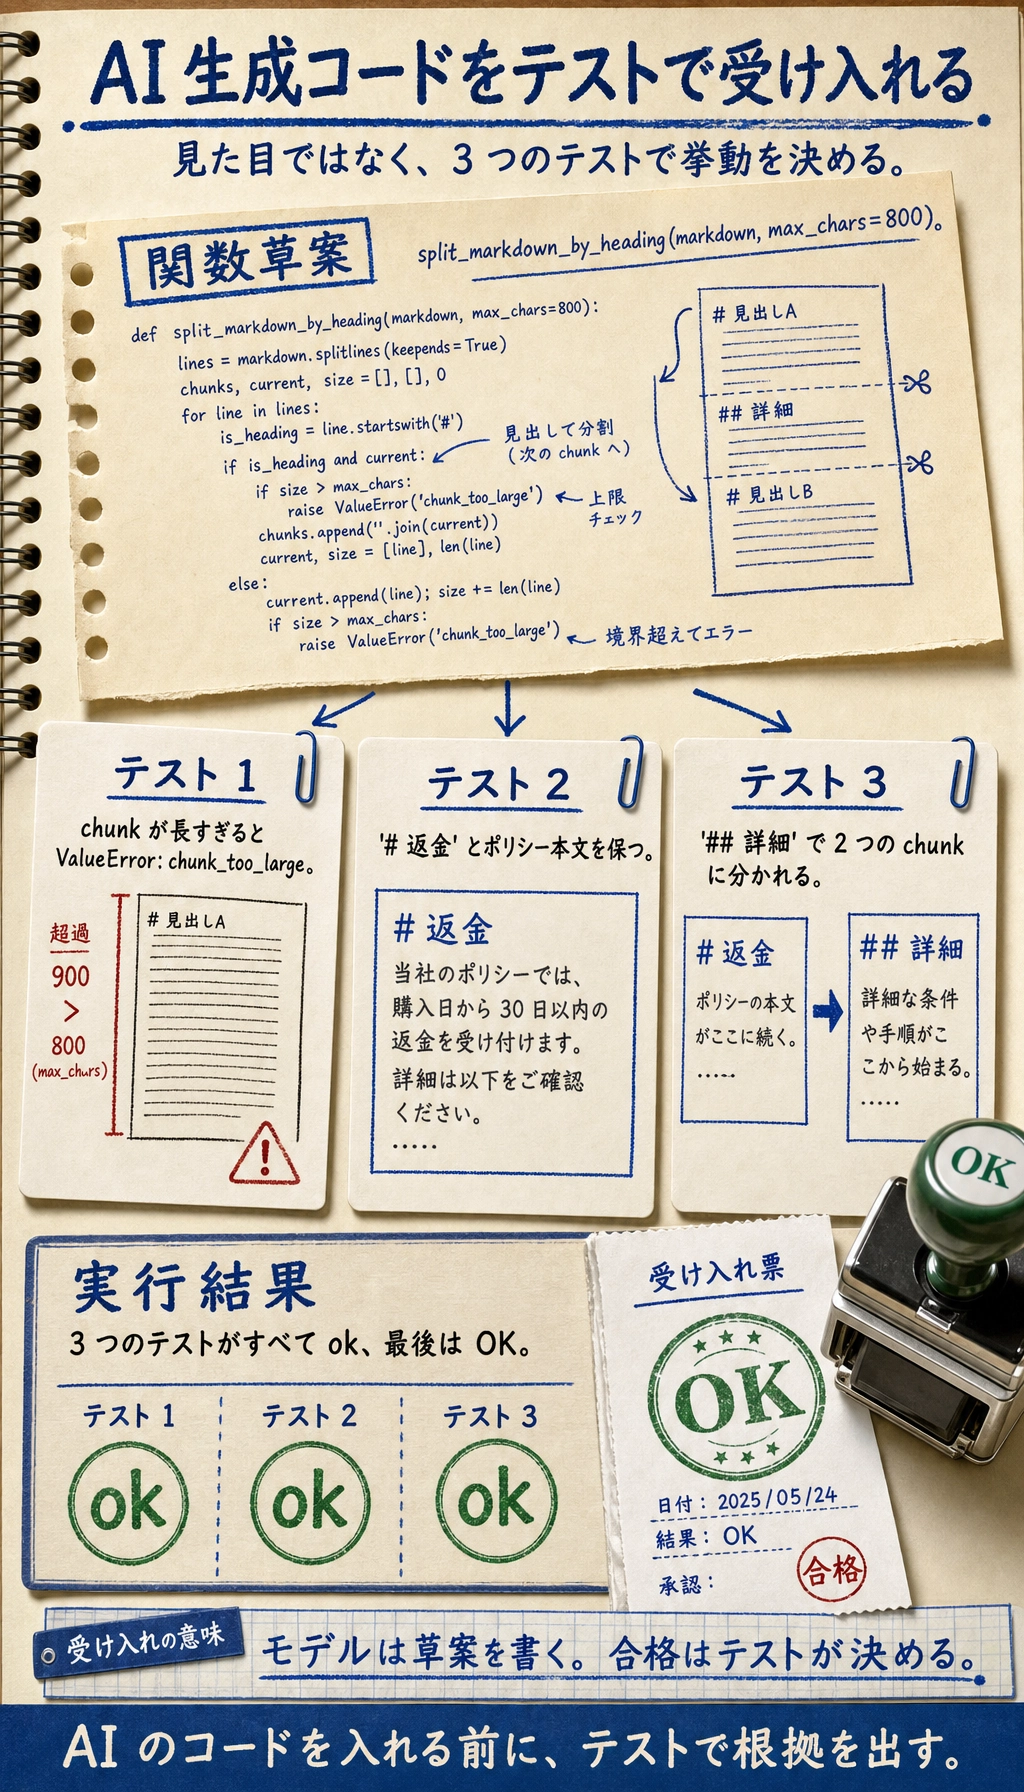 AI 生成コードをテストで受け入れる
見た目ではなく、3 つのテストで挙動を決める。
関数草案
split_markdown_by_heading(markdown, max_chars=800)。
def split_markdown_by_heading(markdown, max_chars=800):
lines = markdown.splitlines(keepends=True)
chunks, current, size = [], [], 0
for line in lines:
is_heading = line.startswith('#')
if is_heading and current:
if size > max_chars:
raise ValueError('chunk_too_large')
chunks.append(''.join(current))
current, size = [line], len(line)
else:
current.append(line); size += len(line)
if size > max_chars:
raise ValueError('chunk_too_large')
見出して分割
(次の chunk へ)
上限
チェック
境界超えてエラー
# 見出しA
## 詳細
# 見出しB
テスト 1
chunk が長すぎると
ValueError: chunk_too_large。
超過
900
>
800
(max_churs)
# 見出しA
!
テスト 2
'# 返金' とポリシー本文を保つ。
# 返金
当社のポリシーでは、
購入日から 30 日以内の
返金を受け付けます。
詳細は以下をご確認
ください。
.....
テスト 3
'## 詳細' で 2 つの chunk
に分かれる。
# 返金
ポリシーの本文
がここに続く。
.....
## 詳細
詳細な条件
や手順がこ
こから始まる。
.....
OK
実行結果
3 つのテストがすべて ok、最後は OK。
テスト 1
ok
テスト 2
ok
テスト 3
ok
受け入れ票
OK
日付: 2025/05/24
結果: OK
承認:
合格
受け入れの意味
モデルは草案を書く。合格はテストが決める。
AI のコードを入れる前に、テストで根拠を出す。